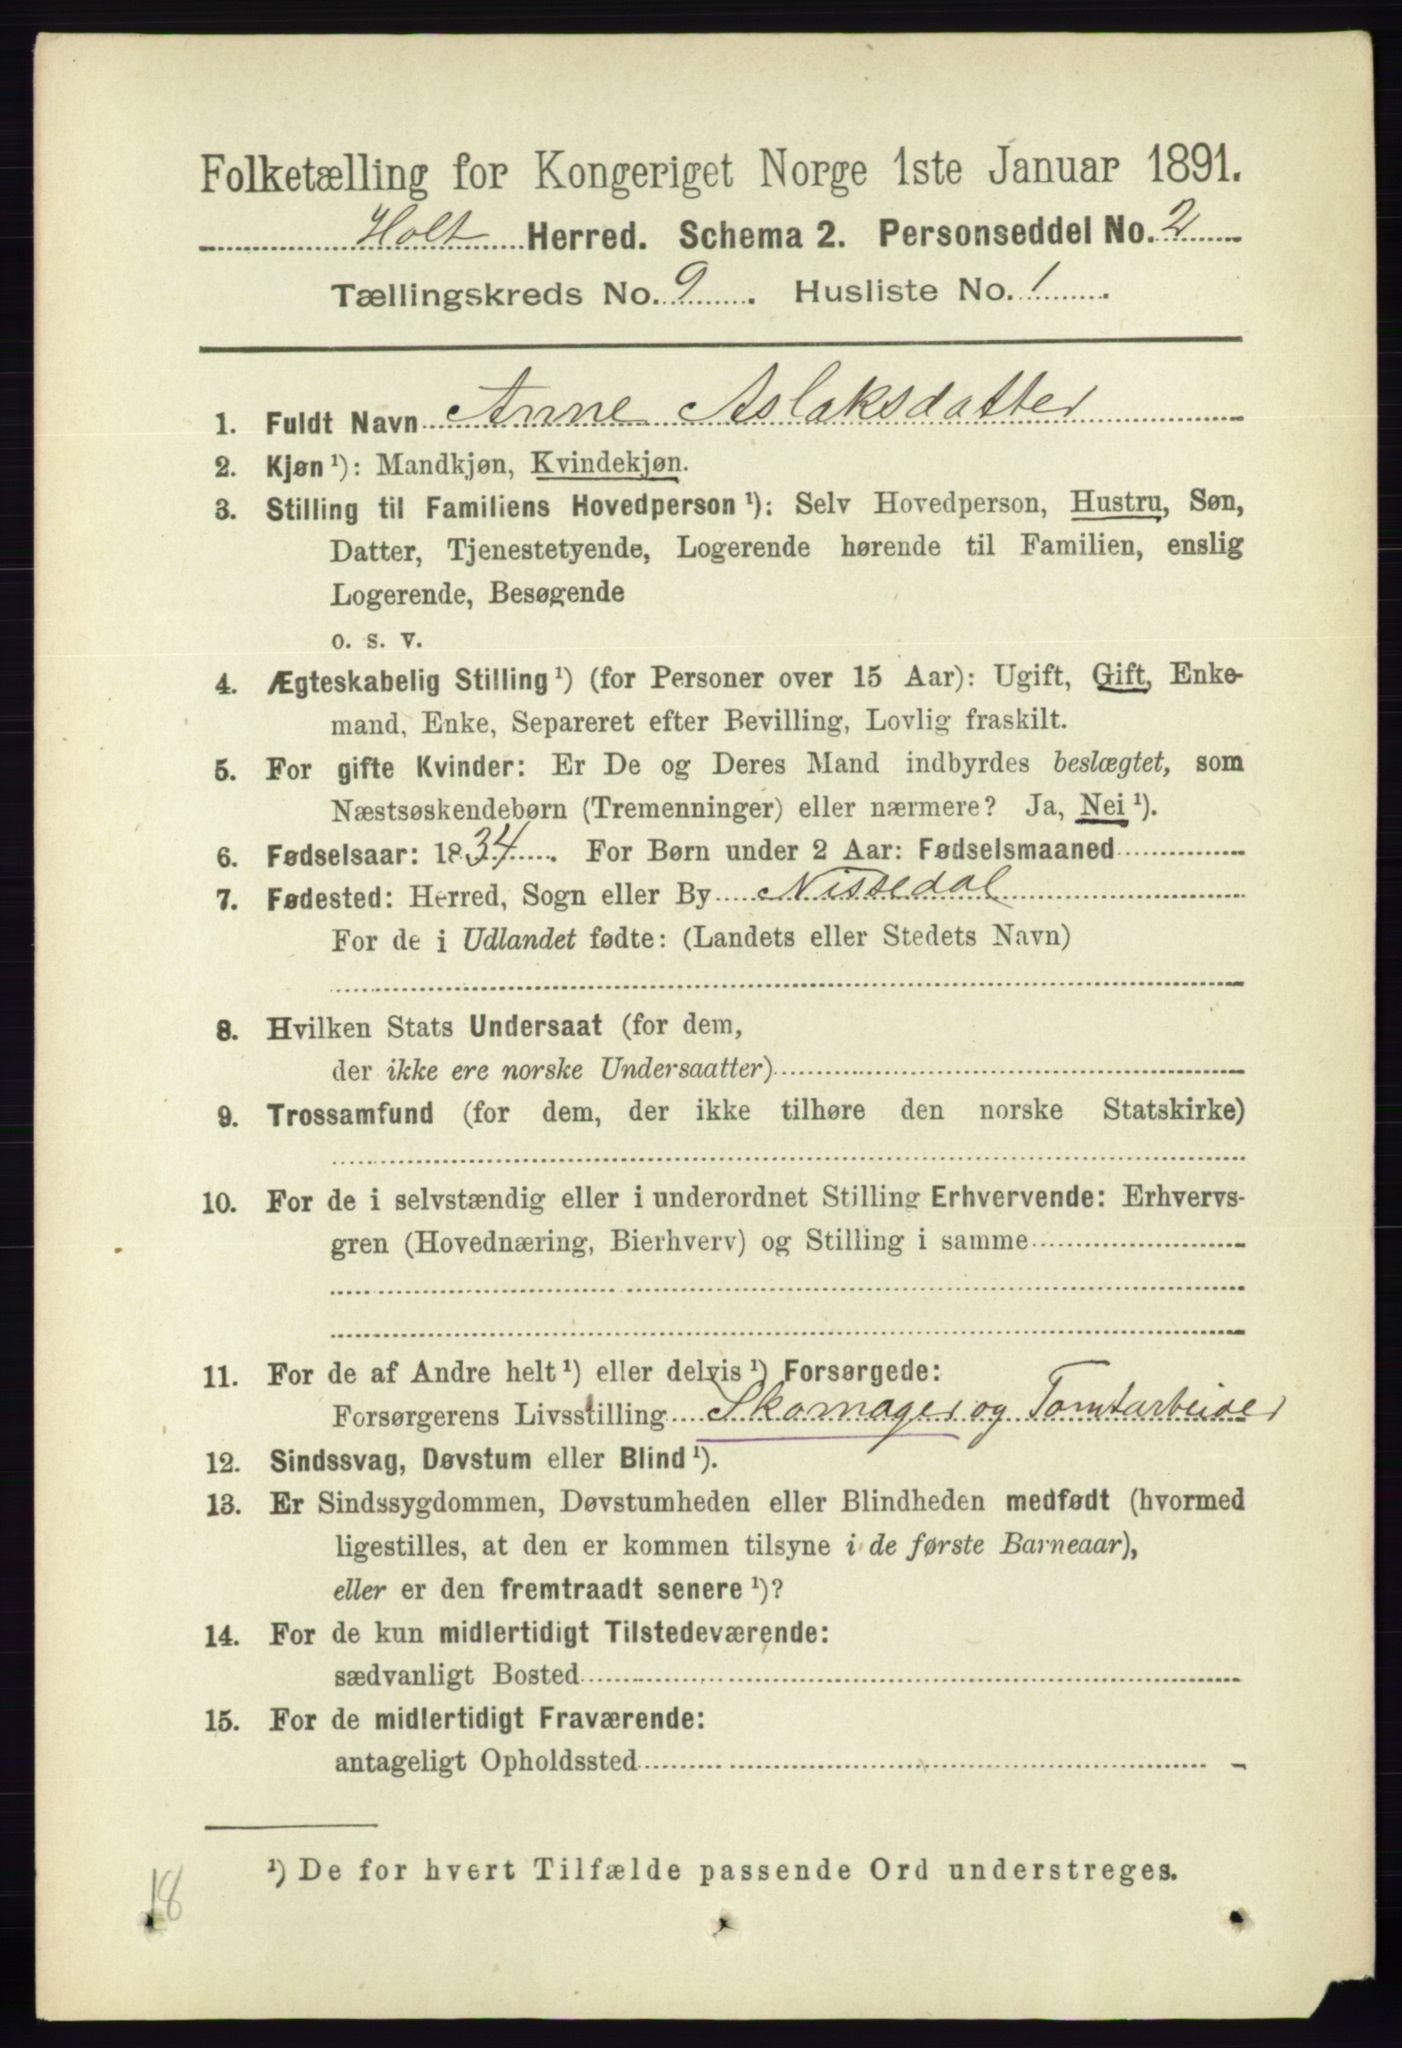 Folketælling for Kongeriget Norge 1ste Januar 1891.
Holt Herred. Schema 2. Personseddel No. 2
Tællingskreds No. 9. Husliste No. 1.
1. Fuldt Navn Anne Aslaksdatter
2. Kjøn ¹): Mandkjøn, Kvindekjøn.
3. Stilling til Familiens Hovedperson ¹): Selv Hovedperson, Hustru, Søn,
Datter, Tjenestetyende, Logerende hørende til Familien, enslig
Logerende, Besøgende
o. s. v.
4. Ægteskabelig Stilling ¹) (for Personer over 15 Aar): Ugift, Gift, Enke-
mand, Enke, Separeret efter Bevilling, Lovlig fraskilt.
5. For gifte Kvinder: Er De og Deres Mand indbyrdes beslægtet, som
Næstsøskendebørn (Tremenninger) eller nærmere? Ja, Nei ¹).
6. Fødselsaar: 1834. For Børn under 2 Aar: Fødselsmaaned
7. Fødested: Herred, Sogn eller By Nissedal
For de i Udlandet fødte: (Landets eller Stedets Navn)
8. Hvilken Stats Undersaat (for dem,
der ikke ere norske Undersaatter)
9. Trossamfund (for dem, der ikke tilhøre den norske Statskirke)
10. For de i selvstændig eller i underordnet Stilling Erhvervende: Erhvervs-
gren (Hovednæring, Bierhverv) og Stilling i samme
11. For de af Andre helt ¹) eller delvis ¹) Forsørgede:
Forsørgerens Livsstilling Skomager og Tomtarbeider
12. Sindssvag, Døvstum eller Blind ¹).
13. Er Sindssygdommen, Døvstumheden eller Blindheden medfødt (hvormed
ligestilles, at den er kommen tilsyne i de første Barneaar),
eller er den fremtraadt senere ¹)?
14. For de kun midlertidigt Tilstedeværende:
sædvanligt Bosted
15. For de midlertidigt Fraværende:
antageligt Opholdssted
¹) De for hvert Tilfælde passende Ord understreges.
18